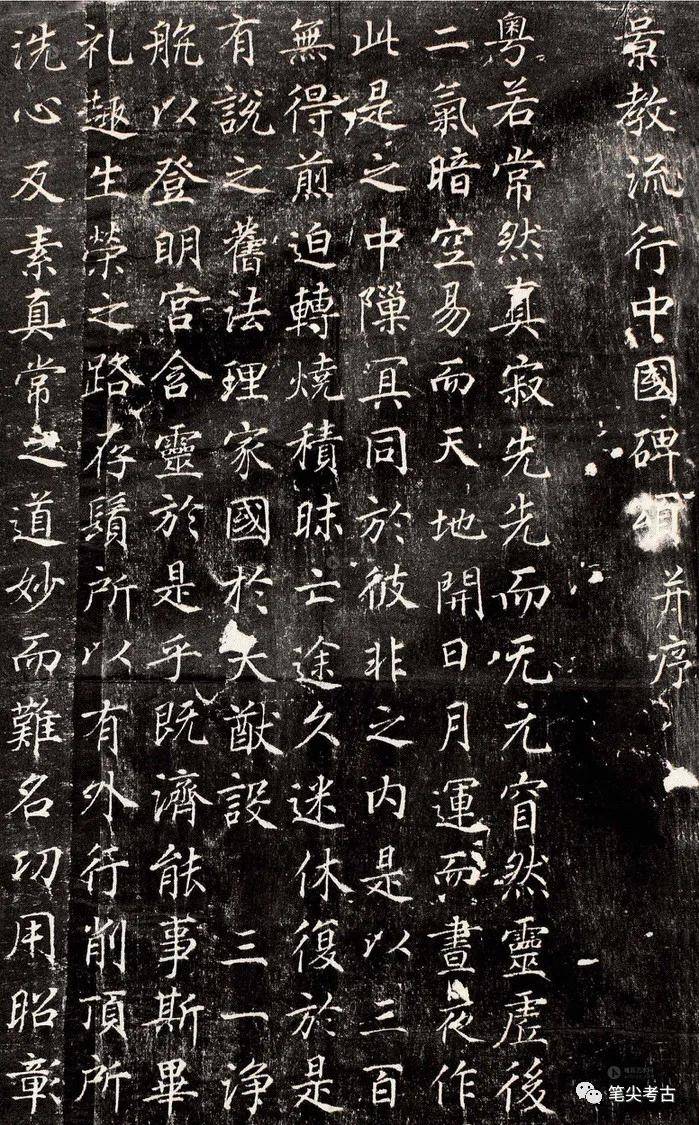 景教流行中國碑頌并序
粵若常然真寂先先而无元窅然靈虛後
二氣暗空易而天地開日月運而晝夜作
此是之中隟冥同於彼非之内是以三百
無得煎迫轉燒積昧亡途久迷休復於是
有說之舊法理家國於大猷設 三一淨
航以登明宮含靈於是乎既濟能事斯畢
礼趣生榮之路存鬚所以有外行削頂所
洗心反素真常之道妙而難名功用昭彰
笔尖考古